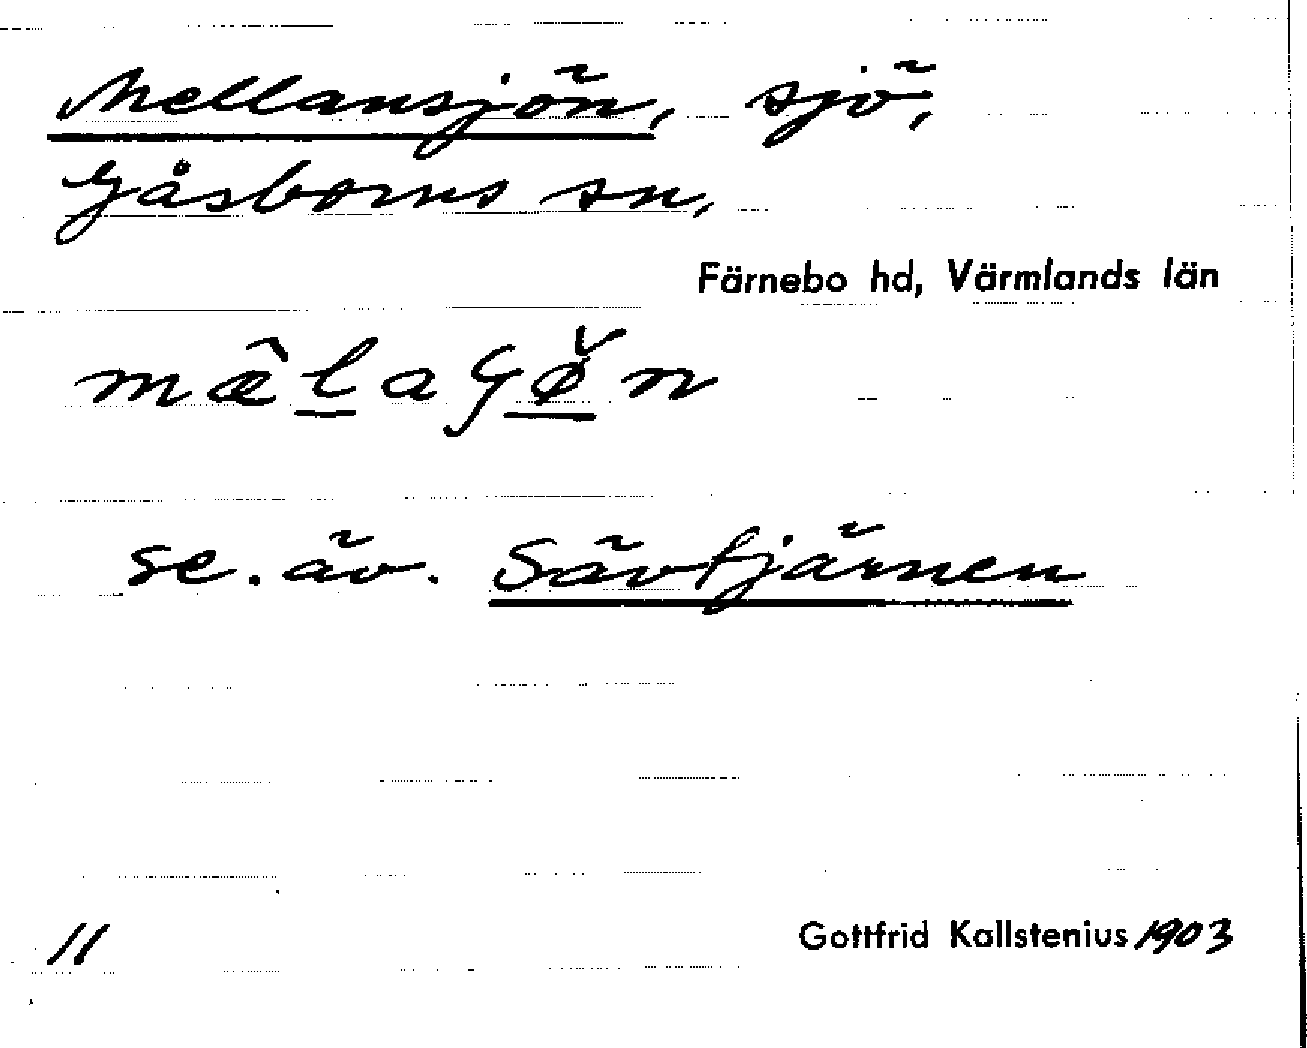 Mellansjön, sjö,
Gåsborns sn,
Färnebo hd, Värmlands län
mæ̂l̲aɢø̲̌n
se. äv. Sävtjärnen
11
Gottfrid Kallstenius 1903